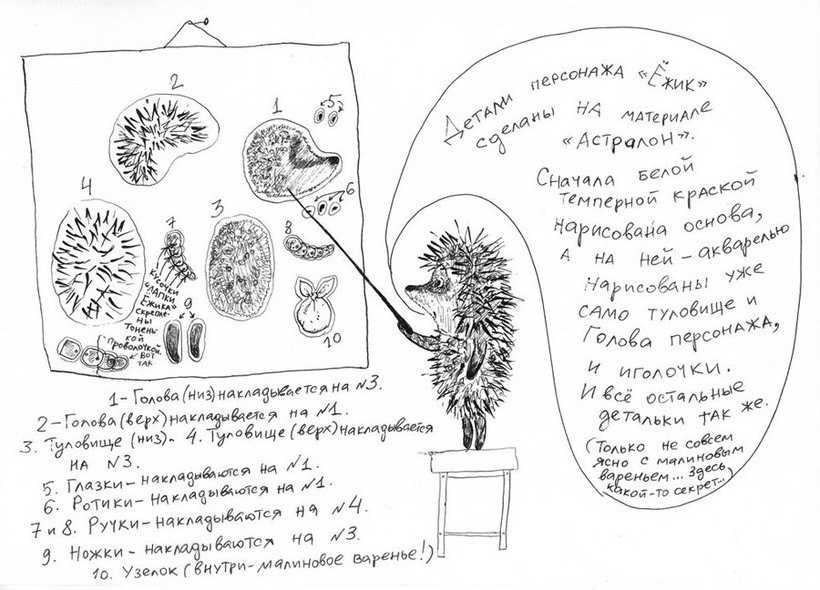 2
1
5
6
4
7
3
8
9
10
кусочки
"лапки
Ёжика"
скрепле-
ны
тонень-
кой
проволочкой.
Вот
так
Детали персонажа «Ёжик»
сделаны на материале
«Астралон».
Сначала белой
темперной краской
нарисована основа,
а на ней – акварелью
нарисованы уже
само туловище и
голова персонажа,
и иголочки.
И всё остальные
детальки так же.
(Только не совсем
ясно с малиновым
вареньем... Здесь
какой-то секрет...)
1 – Голова (низ) накладывается на №3.
2 – Голова (верх) накладывается на №1.
3. Туловище (низ) - 4. Туловище (верх) накладывается
на №3.
5. Глазки – накладываются на №1.
6. Ротики – накладываются на №1.
7 и 8. Ручки – накладываются на №4.
9. Ножки – накладываются на №3.
10. Узелок (внутри – малиновое варенье!)